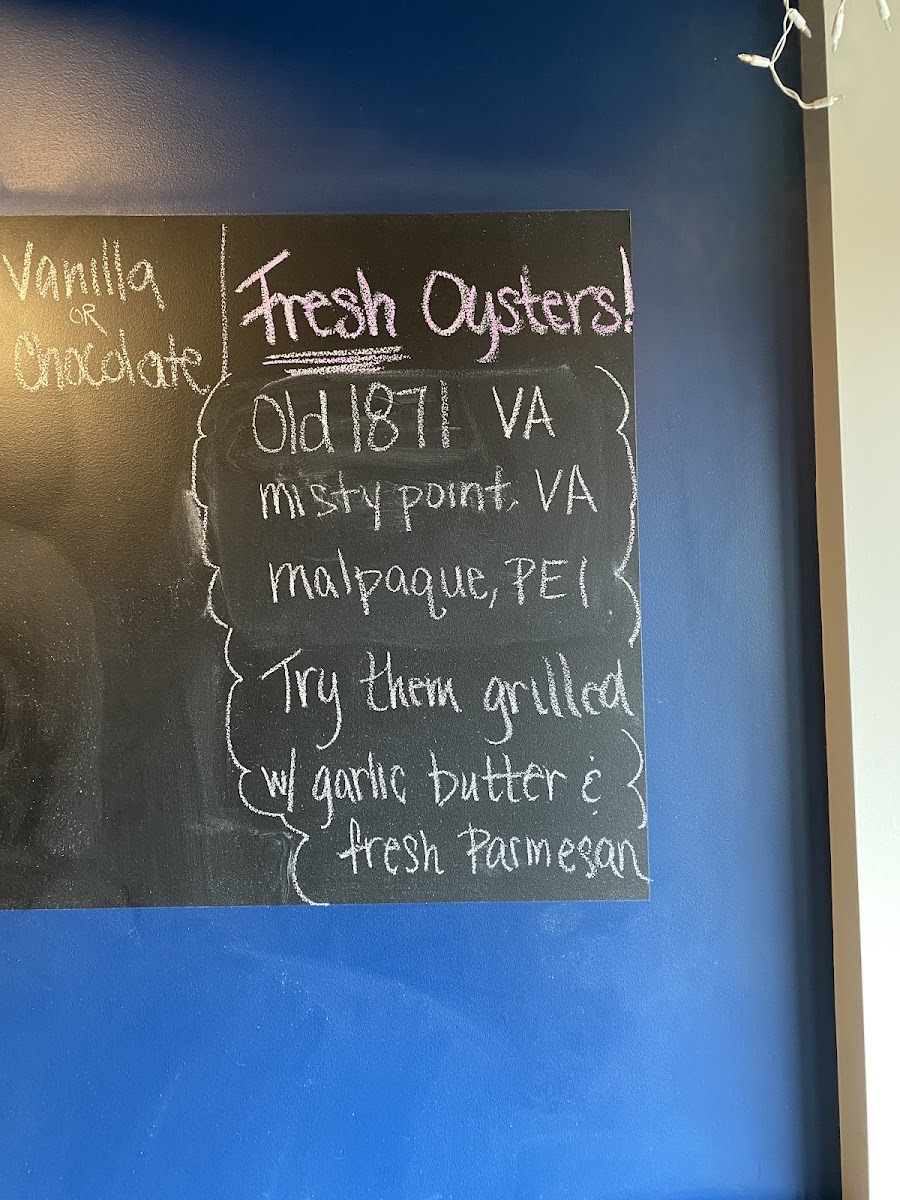 Vanilla
OR
Chocolate
Fresh Oysters!
Old 1871 VA
misty point, VA
malpaque, PEI
Try them grilled
w/ garlic butter &
fresh Parmesan